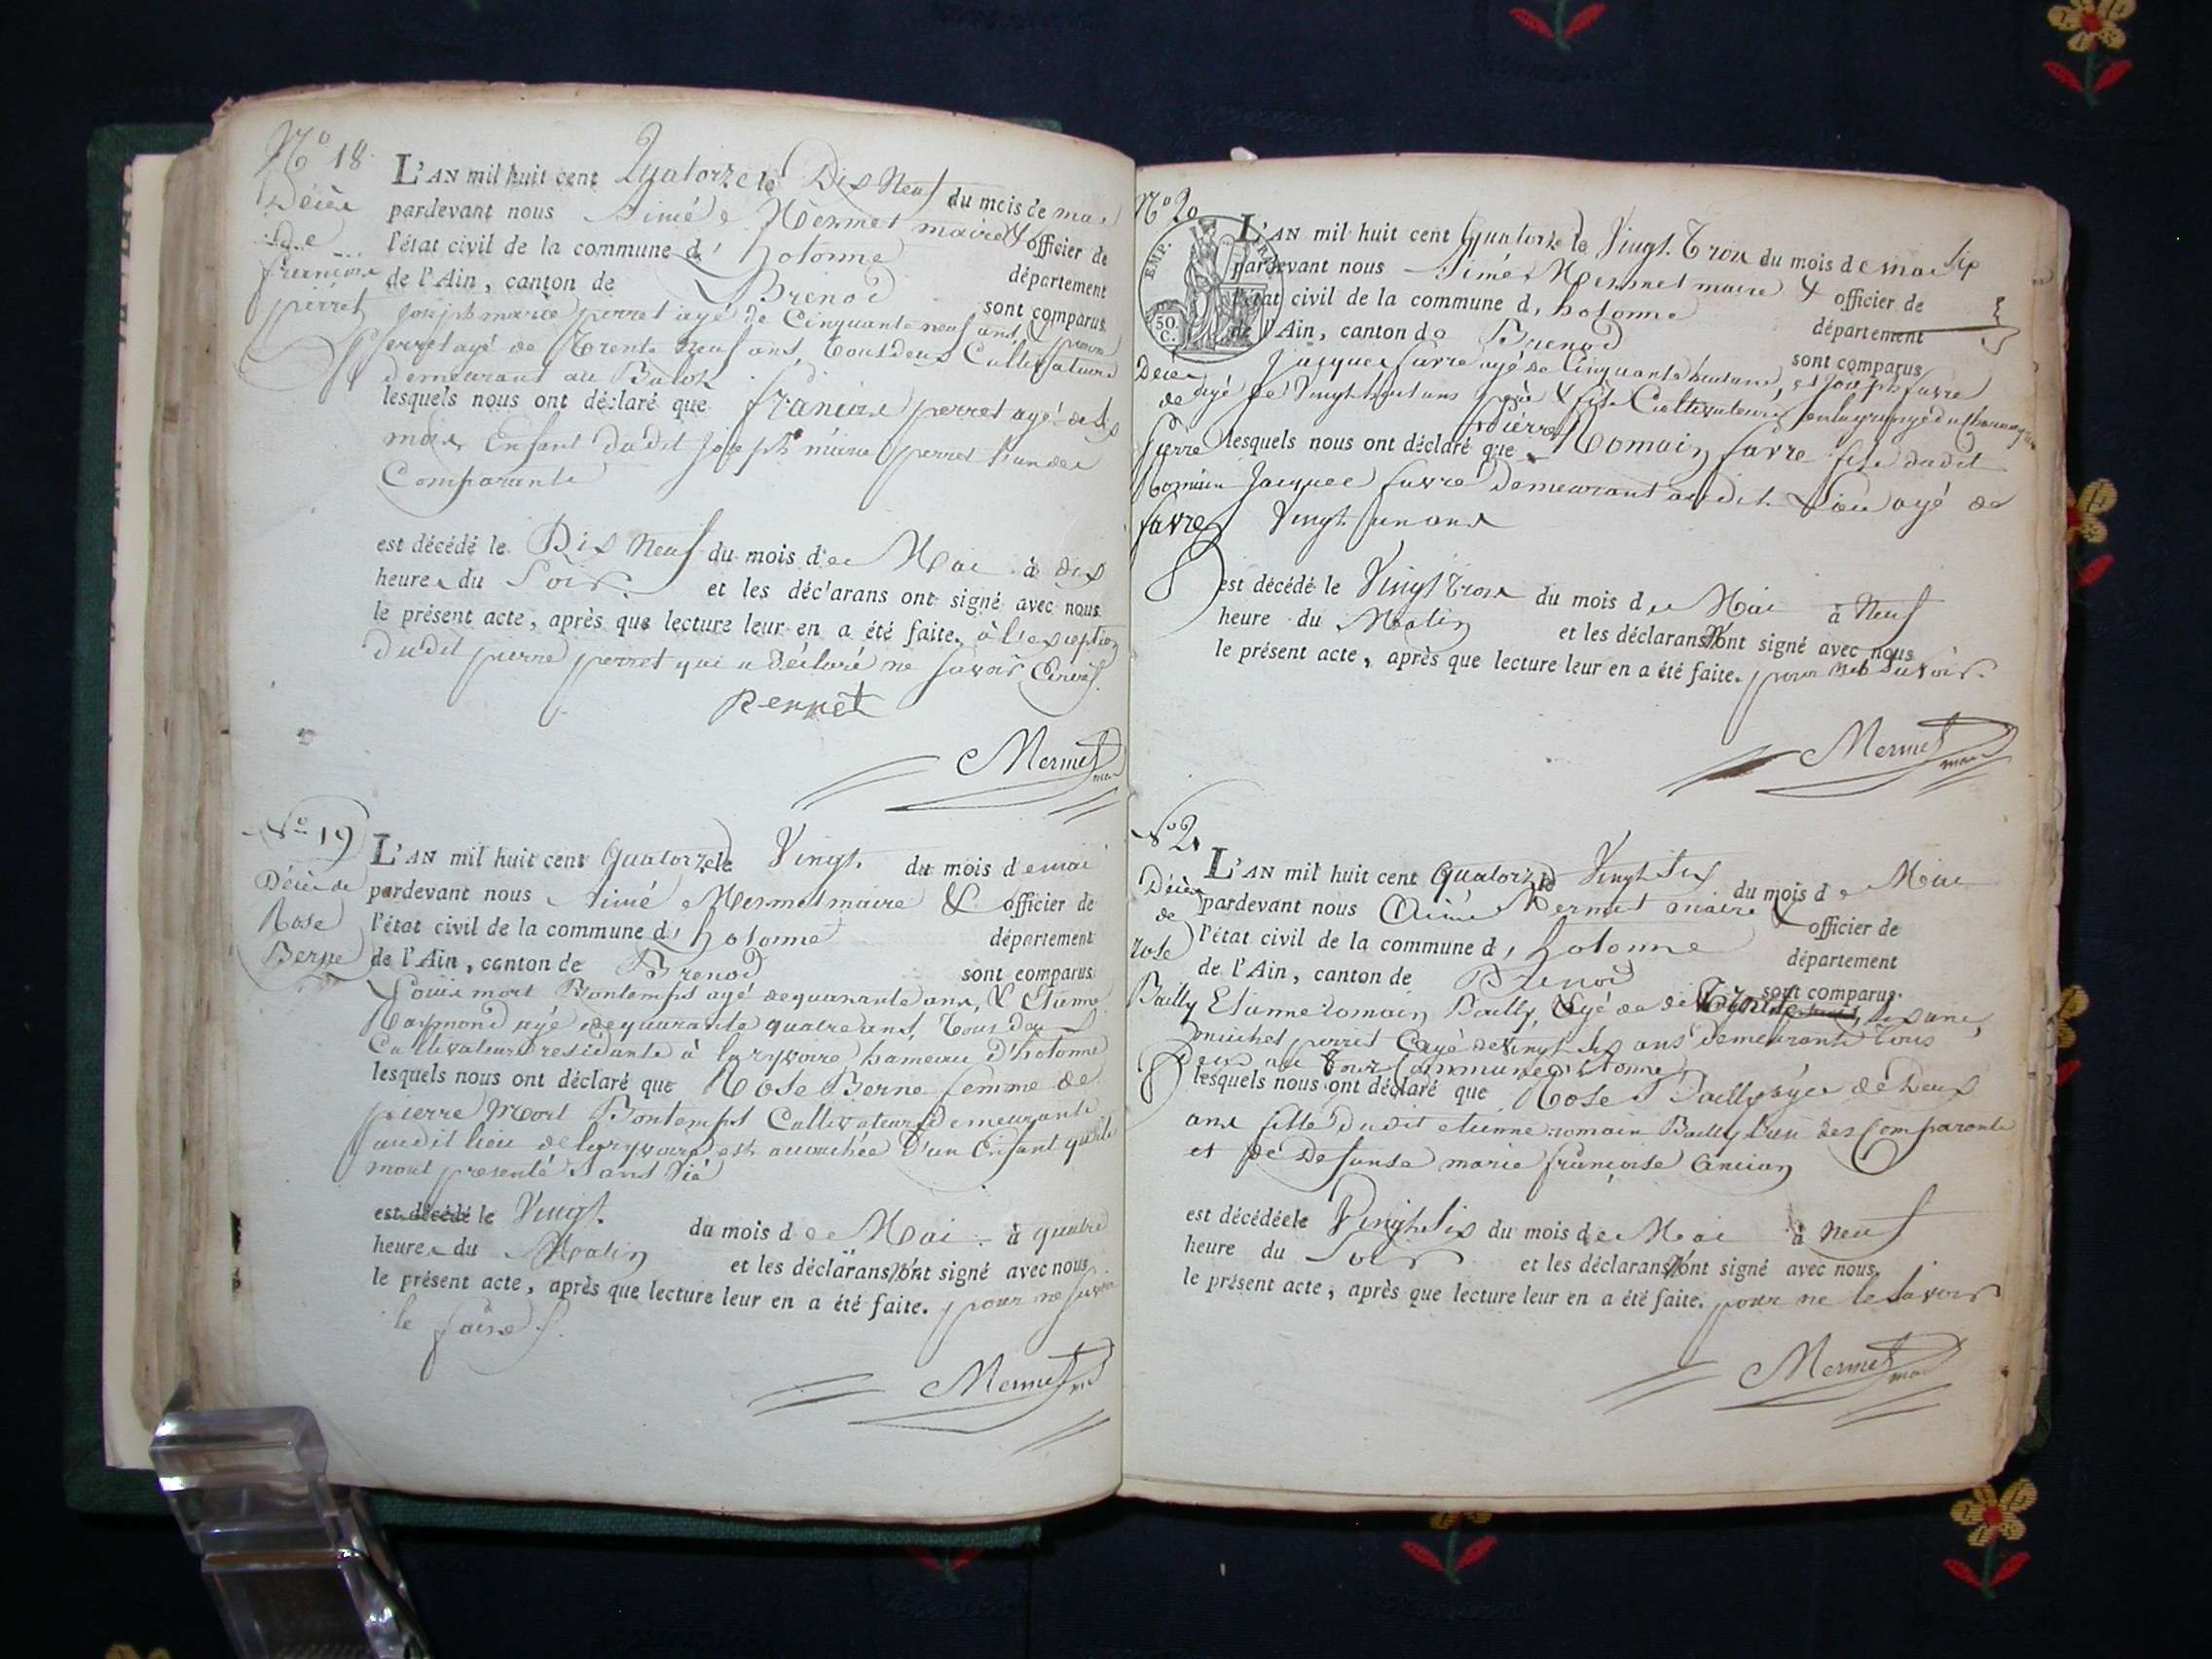 No 18
Décès
de
françoise
perret
L'AN mil huit cent Quatorze le Dix Neuf du mois de mai
pardevant nous Aimé Mermet maire & officier de
l'état civil de la commune d' hotonne département
de l'Ain, canton de Brenod sont comparus
joseph marie perret agé de Cinquante neuf ans, & pierre
perret agé de Trente Neuf ans, tous deux Cultivateurs
demeurant au
lesquels nous ont déclaré que françoise perret agé de six
mois Enfant dudit joseph marie perret l'un des
Comparants
est décédé le Dix Neuf du mois de Mai à dix
heures du Soir. et les déclarans ont signé avec nous
le présent acte, après que lecture leur en a été faite. à l'exception
dudit pierre perret qui a déclaré ne savoir Ecrire
Perret
Mermet
maire
No 19
Décès de
Rose
Berne
L'AN mil huit cent Quatorze le Vingt du mois de mai
pardevant nous Aimé Mermet maire & officier de
l'état civil de la commune d' hotonne département
de l'Ain, canton de Brenod sont comparus
Louis mort Bontemps agé de quarante ans, & Etienne
Raymond agé de quarante quatre ans, Tous deux
Cultivateurs residants à hameau d'hotonne
lesquels nous ont déclaré que Rose Berne femme de
pierre Mort Bontemps Cultivateurs demeurants
audit lieu de est accouchée D'un Enfant qu'ils
m'ont presenté sans Vie
est décédé le Vingt du mois d de Mai à quatre
heures du Matin et les déclarans n'ont signé avec nous
le présent acte, après que lecture leur en a été faite. pour ne savoir
le faire
Mermet
No 20
EMP. FRA.
50. C.
Décès
de
Pierre
Romain
favre
L'AN mil huit cent Quatorze le Vingt Trois du mois de mai
pardevant nous Aimé Mermet maire & officier de
l'état civil de la commune d, hotonne département
de l'Ain, canton de Brenod sont comparus
jacques favre agé de Cinquante huit ans, et joseph favre
agé de Vingt huit ans père & fils Cultivateurs
lesquels nous ont déclaré que Pierre Romain favre fils dudit
Jacques favre demeurant audit Lieu agé de
Vingt un ans
est décédé le Vingt Trois du mois d de Mai à Neuf
heure du Matin et les déclarans n'ont signé avec nous
le présent acte, après que lecture leur en a été faite. pour ne savoir.
Mermet
maire
No 21
Décès
de
rose
Bailly
L'AN mil huit cent Quatorze le Vingt Six du mois d e Mai
pardevant nous Aimé Mermet maire & officier de
l'état civil de la commune d, hotonne département
de l'Ain, canton de Brenod sont comparus.
Etienne romain Bailly, Agé de ans,
michel perret Agé de Vingt six ans demeurants tous
deux
lesquels nous ont déclaré que Rose Bailly agée de Deux
ans fille dudit etienne romain Bailly l'un des Comparants
et de Defunte marie françoise Ancian
est décédée le Vingt Six du mois d de Mai à Neuf
heure du Soir et les déclarans n'ont signé avec nous.
le présent acte, après que lecture leur en a été faite. pour ne le Savoir
Mermet
maire